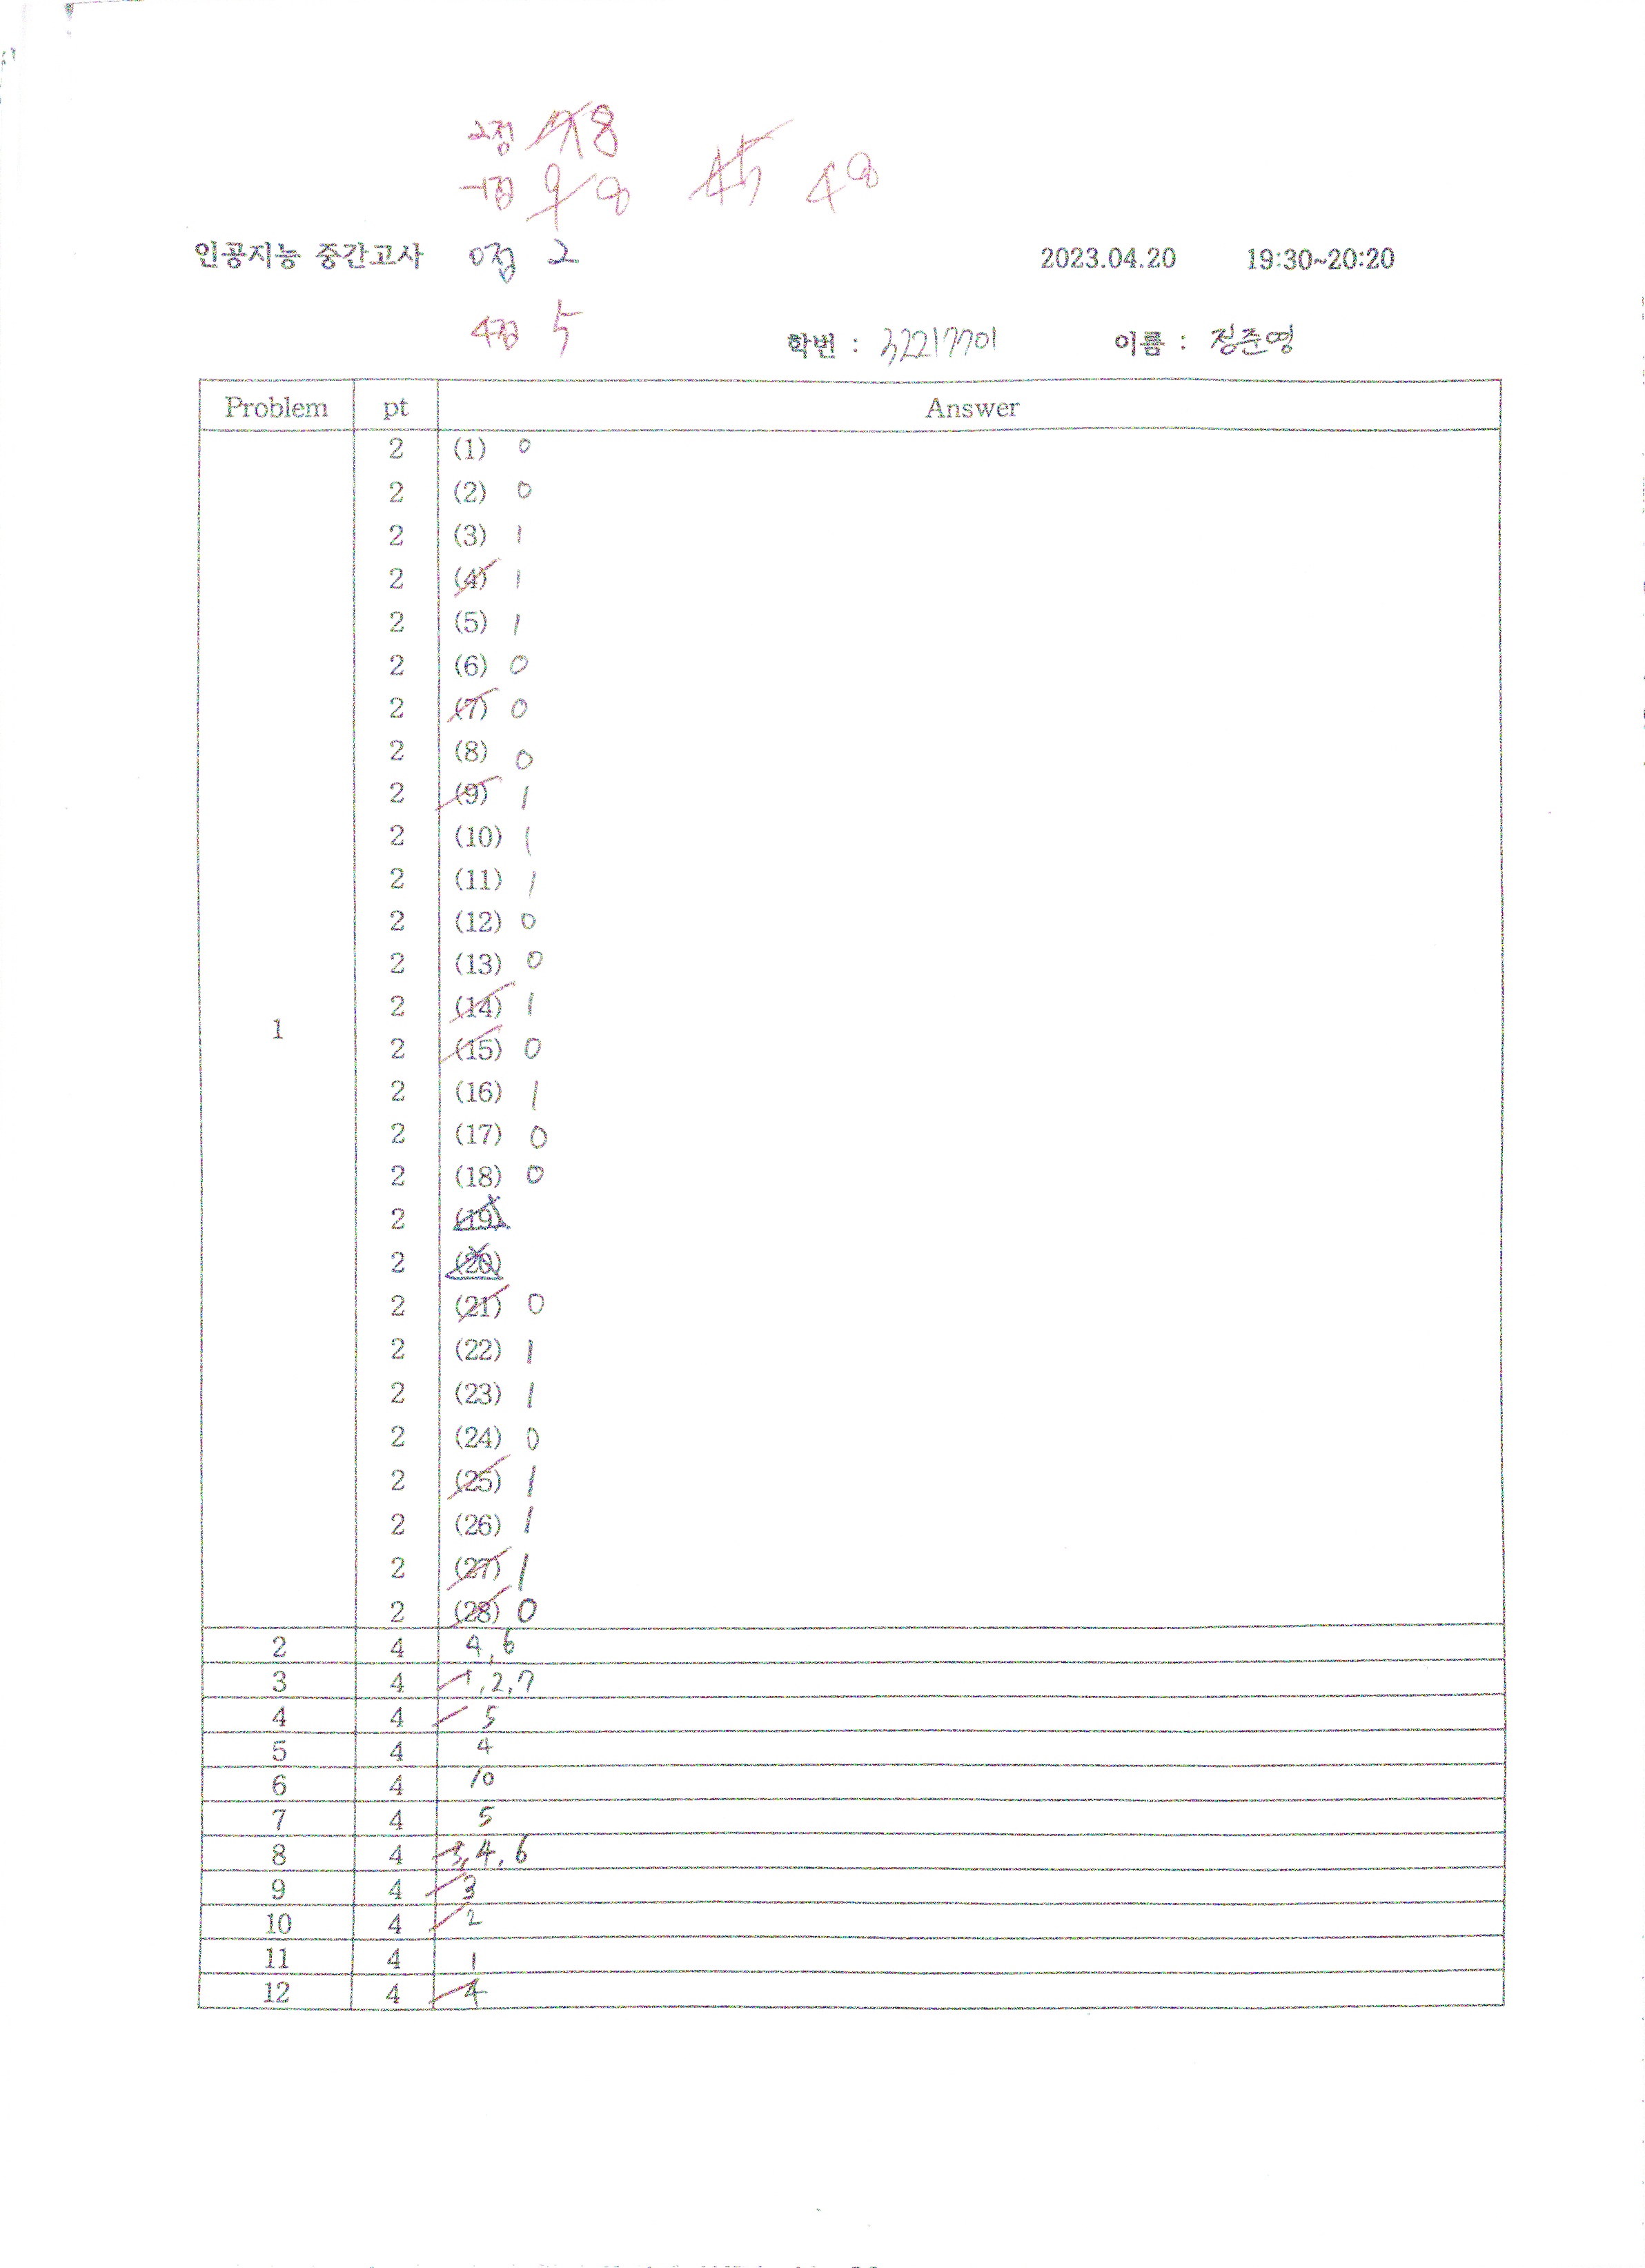 2점 8
-1점 9 8 45 48
인공지능 중간고사 0점 2 2023.04.20 19:30~20:20
4점 5
학번 : 32217701 이름 : 정준영
Problem pt Answer
2 (1) 0
2 (2) 0
2 (3) 1
2 (4) 1
2 (5) 1
2 (6) 0
2 (7) 0
2 (8) 0
2 (9) 1
2 (10) 1
2 (11) 1
2 (12) 0
2 (13) 0
2 (14) 1
1
2 (15) 0
2 (16) 1
2 (17) 0
2 (18) 0
2 (19)
2 (20)
2 (21) 0
2 (22) 1
2 (23) 1
2 (24) 0
2 (25) 1
2 (26) 1
2 (27) 1
2 (28) 0
2 4 4, 6
3 4 1, 2, 7
4 4 5
5 4 4
6 4 10
7 4 5
8 4 3, 4, 6
9 4 3
10 4 2
11 4 1
12 4 4